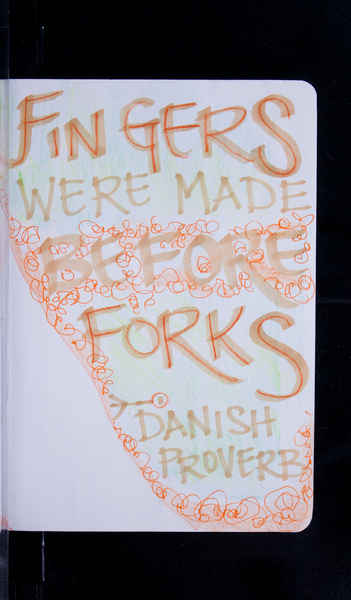 FINGERS
WERE MADE
BEFORE
FORKS
DANISH
PROVERB